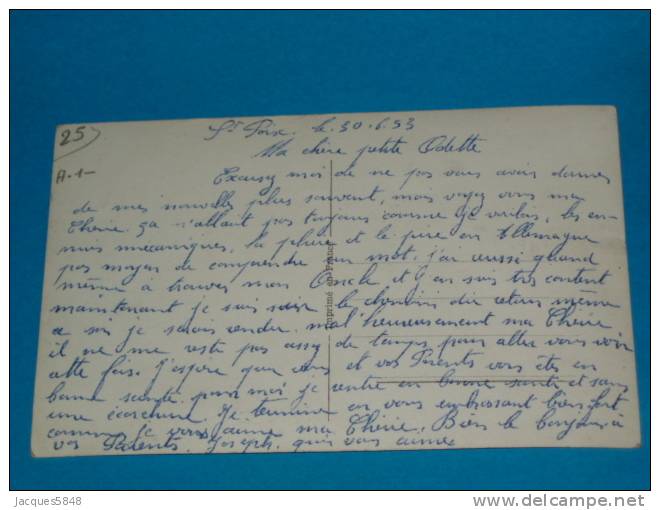 25)
A-1-
le 30.6.53
Ma chère petite Odette
Excusez moi de ne pas vous avoir donner
de mes nouvelles plus souvent, mais voyez vous ma
Chérie ça n'allait pas toujours comme je voulais, les en-
nuis mecaniques, la pluie et le pire en Allemagne
pas moyen de comprendre un mot. j'ai aussi quand
même a trouver mon Oncle et j'en suis très content
maintenant je suis sur le chemin du retour même
a je serais rendu. malheureusement ma Chérie
il ne me reste pas assez de temps pour aller vous voir
cette fois. J'espère que vous et vos Parents vous êtes en
bonne santé, pour moi je rentre en bonne santé et sans
une Je termine en vous embrassant bien fort
comme je vous aime ma Chérie. Bien le bonjour à
vos Parents. Joseph qui vous aime
Imprimé en France
Jacques5848
delcampe.net